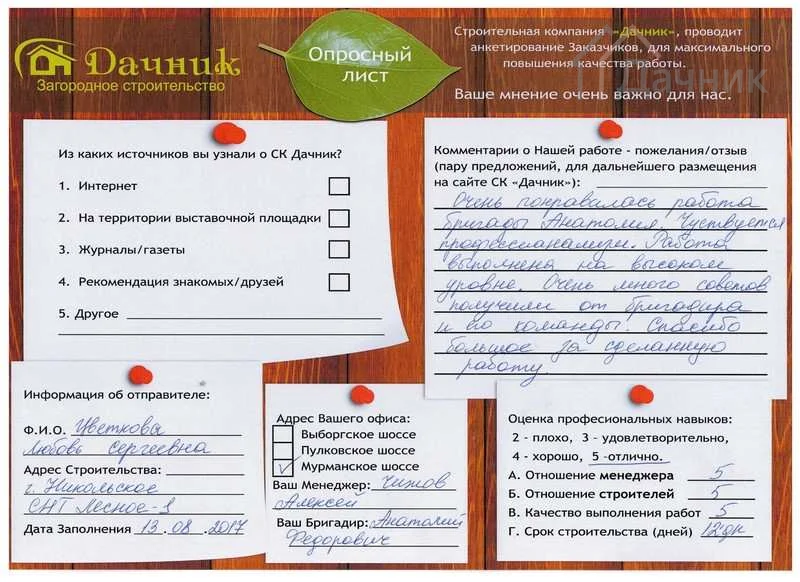 Дачник
Загородное строительство
Опросный
лист
Строительная компания «Дачник», проводит
анкетирование Заказчиков, для максимального
повышения качества работы.
Ваше мнение очень важно для нас.
Дачник
Из каких источников вы узнали о СК Дачник?
1. Интернет
2. На территории выставочной площадки
3. Журналы/газеты
4. Рекомендация знакомых/друзей
5. Другое
Комментарии о Нашей работе - пожелания/отзыв
(пару предложений, для дальнейшего размещения
на сайте СК «Дачник»):
Очень понравалась работа
бригады Анатолия. Чуствуется
профессионализм. Работа
выполнена на высоком
уровне. Очень много советов
получили от бригадира
и его команды. Спасибо
большое за сделанную
работу.
Информация об отправителе:
Ф.И.О. Цветкова
Любовь Сергеевна
Адрес Строительства:
г. Никольское
СНТ Лесное-1
Дата Заполнения 13.08.2017
Адрес Вашего офиса:
Выборгское шоссе
Пулковское шоссе
✓ Мурманское шоссе
Ваш Менеджер: Чижов
Алексей
Ваш Бригадир: Анатолий
Федорович
Оценка профессиональных навыков:
2 - плохо, 3 - удовлетворительно,
4 - хорошо, 5 -отлично.
А. Отношение менеджера 5
Б. Отношение строителей 5
В. Качество выполнения работ 5
Г. Срок строительства (дней) 12дн